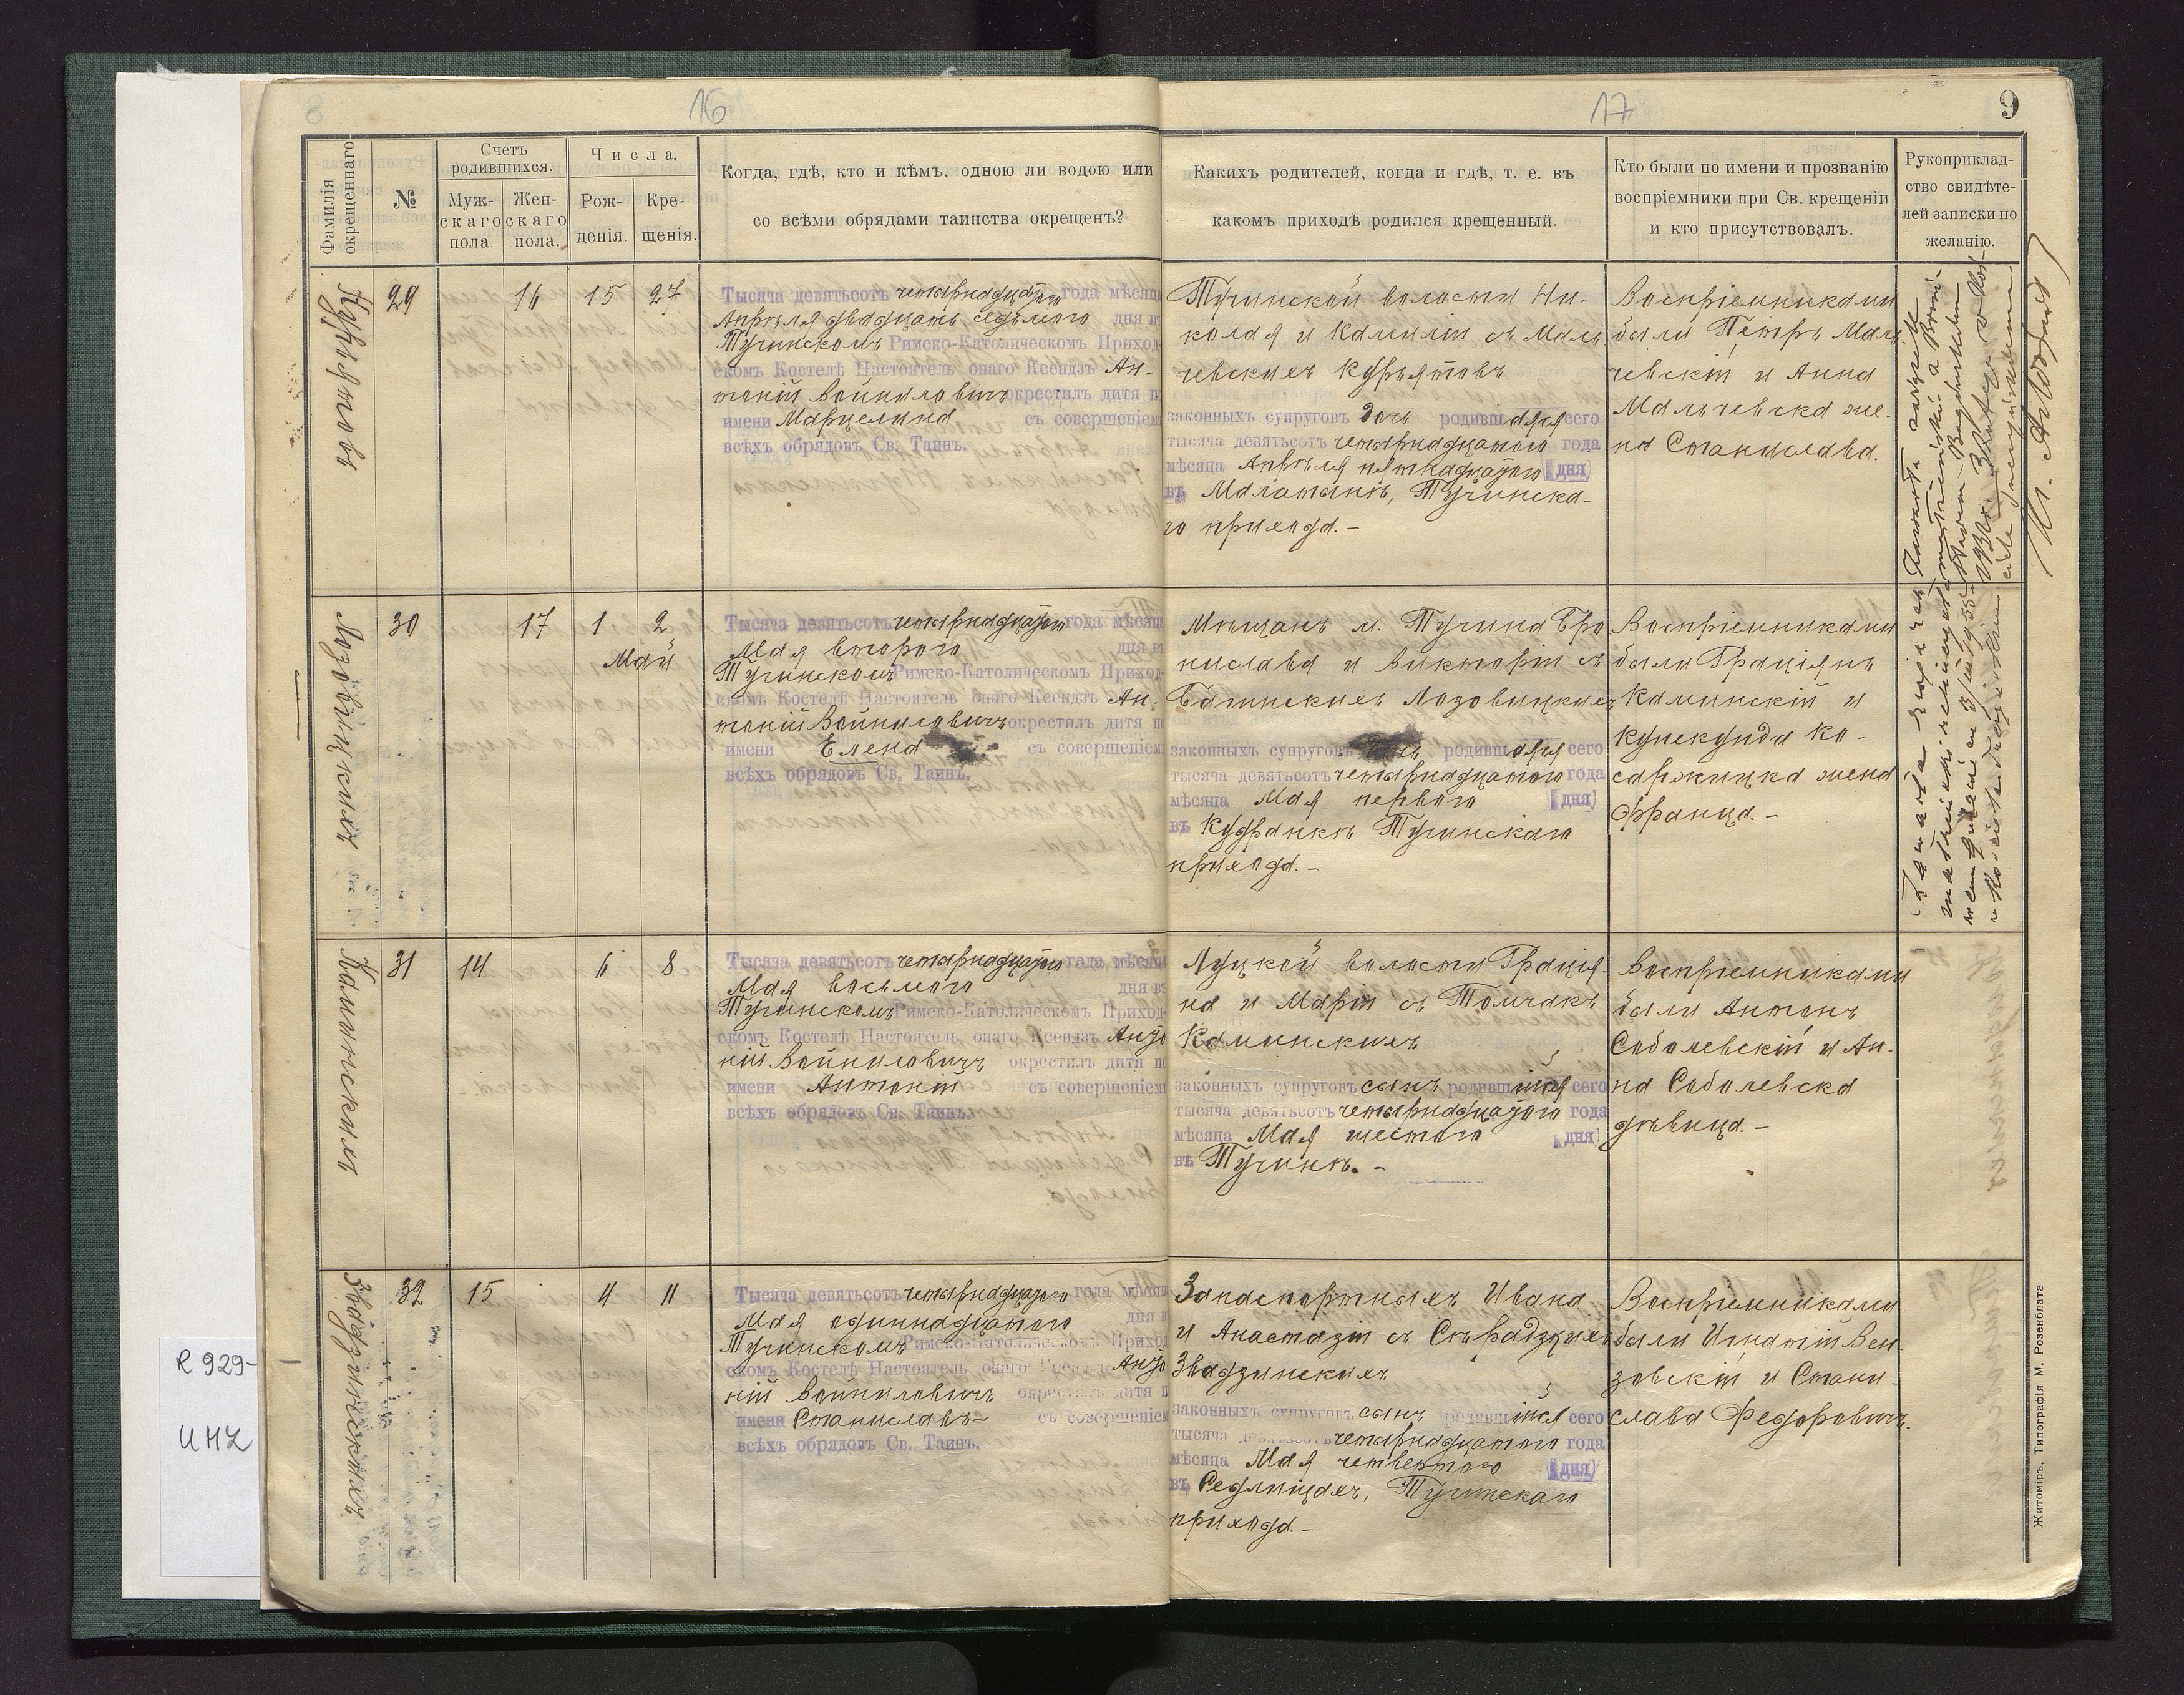 16
17
9
Фамилія окрещеннаго
№
Счетъ родившихся.
Муж-
скаго
пола.
Жен-
скаго
пола.
Числа.
Рож-
денія.
Кре-
щенія.
Когда, гдѣ, кто и кѣмъ, одною ли водою или
со всѣми обрядами таинства окрещенъ?
Каких родителей, когда и гдѣ, т. е. въ
какомъ приходѣ родился крещенный.
Кто были по имени и прозванію
воспріемники при Св. крещеніи
и кто присутствовалъ.
Рукоприклад-
ство свидѣте-
лей записки по
желанію.
29
16
15
27
Тысяча девятьсотъ четырнадцатого года мѣсяца
Апрѣля двадцать седьмого дня въ
Тучинскомъ Римско-Католическомъ Приход-
скомъ Костелѣ Настоятель онаго Ксендзъ Ан-
тоній Войниловичъ окрестилъ дитя по
имени Марцелина съ совершеніемъ
всѣхъ обрядовъ Св. Таинъ.
Тучинской волости Ни-
колая и Камиліи съ Маль
чевскихъ Курьятовъ
законныхъ супруговъ дочь родившаяся сего
тысяча девятьсотъ четырнадцатого года
мѣсяца Апрѣля пятнадцатого дня
въ Малатынѣ, Тучинска-
го прихода.-
Воспріемниками
были Петръ Маль
чевскій и Анна
Мальчевска же-
на Станислава.
Лозовицкихъ
30
17
1
2
Май
Тысяча девятьсотъ четырнадцатого года мѣсяца
Мая второго дня въ
Тучинскомъ Римско-Католическомъ Приход-
скомъ Костелѣ Настоятель онаго Ксендзъ Ан-
тоній Войниловичъ окрестилъ дитя по
имени Елена съ совершеніемъ
всѣхъ обрядовъ Св. Таинъ.
Мѣщанъ м. Тучина Бро
нислава и Викторіи съ
Лозовицкихъ
законныхъ супруговъ дочь родившаяся сего
тысяча девятьсотъ четырнадцатого года
мѣсяца Мая первого дня
въ Кудранкѣ Тучинскаго
прихода.-
Воспріемниками
были Граціянъ
Каминскій и
Кунекунда Ко-
саржицка жена
Франца.-
Каминскихъ
31
14
6
8
Тысяча девятьсотъ четырнадцатого года мѣсяца
Мая восьмого дня въ
Тучинскомъ Римско-Католическомъ Приход-
скомъ Костелѣ Настоятель онаго Ксендзъ Анто
ній Войниловичъ окрестилъ дитя по
имени Антоній съ совершеніемъ
всѣхъ обрядовъ Св. Таинъ.
Луцкой волости Грація-
на и Маріи съ Томчакъ
Каминскихъ
законныхъ супруговъ сынъ родившійся сего
тысяча девятьсотъ четырнадцатого года
мѣсяца Мая шестого дня
въ Тучинѣ.-
Воспріемниками
были Антонъ
Соболевскій и Ан-
на Соболевска
дѣвица.-
Звадзинскихъ
32
15
4
11
Тысяча девятьсотъ четырнадцатого года мѣсяца
Мая одиннадцатого дня въ
Тучинскомъ Римско-Католическомъ Приход-
скомъ Костелѣ Настоятель онаго Ксендзъ Анто
ній Войниловичъ окрестилъ дитя по
имени Станиславъ- съ совершеніемъ
всѣхъ обрядовъ Св. Таинъ.
Запаспортныхъ Ивана
и Анастазіи съ Сѣрадзкихъ
Звадзинскихъ
законныхъ супруговъ сынъ родившійся сего
тысяча девятьсотъ четырнадцатого года
мѣсяца Мая четвертого дня
въ Седлищахъ, Тучинскаго
прихода.-
Воспріемниками
были Игнатій Вен-
зовскій и Стани-
слава Федоровичъ.
Житоміръ, Типографія М. Розенблата
R 929-